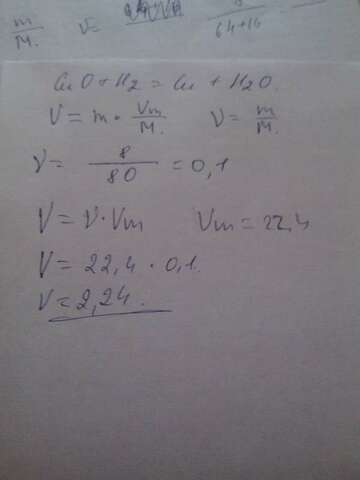 m/M. ν= 8/64+16
CuO+H2 = Cu + H2O.
V = m · Vm/M. ν = m/M.
ν = 8/80 = 0,1
V = ν · Vm Vm = 22,4
V = 22,4 · 0,1.
V = 2,24.